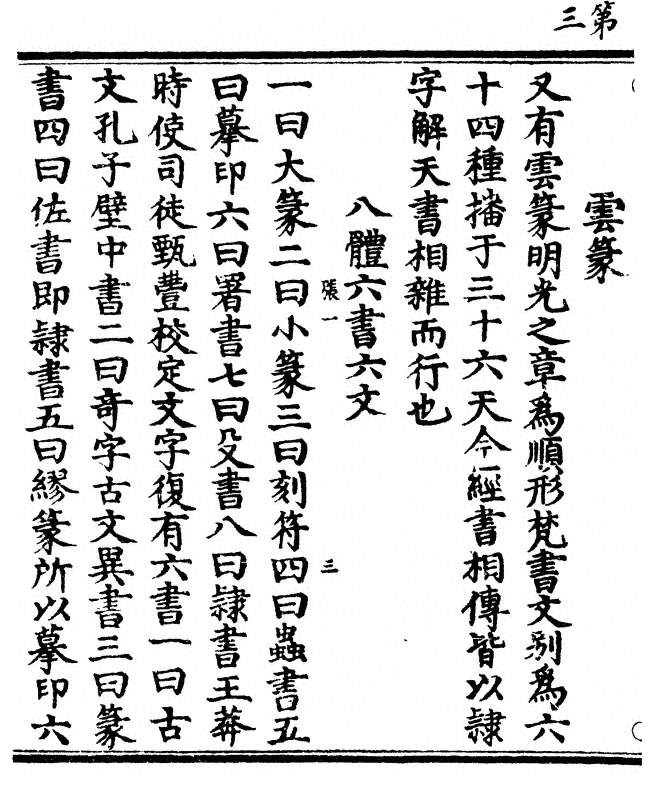 第三
雲篆
又有雲篆明光之章爲順形梵書文别爲六
十四種播于三十六天今經書相傳皆以隸
字解天書相雜而行也
八體六書六文
張一
三
一曰大篆二曰小篆三曰刻符四曰蟲書五
曰摹印六曰署書七曰殳書八曰隸書王莽
時使司徒甄豐校定文字復有六書一曰古
文孔子壁中書二曰奇字古文異書三曰篆
書四曰佐書即隸書五曰繆篆所以摹印六